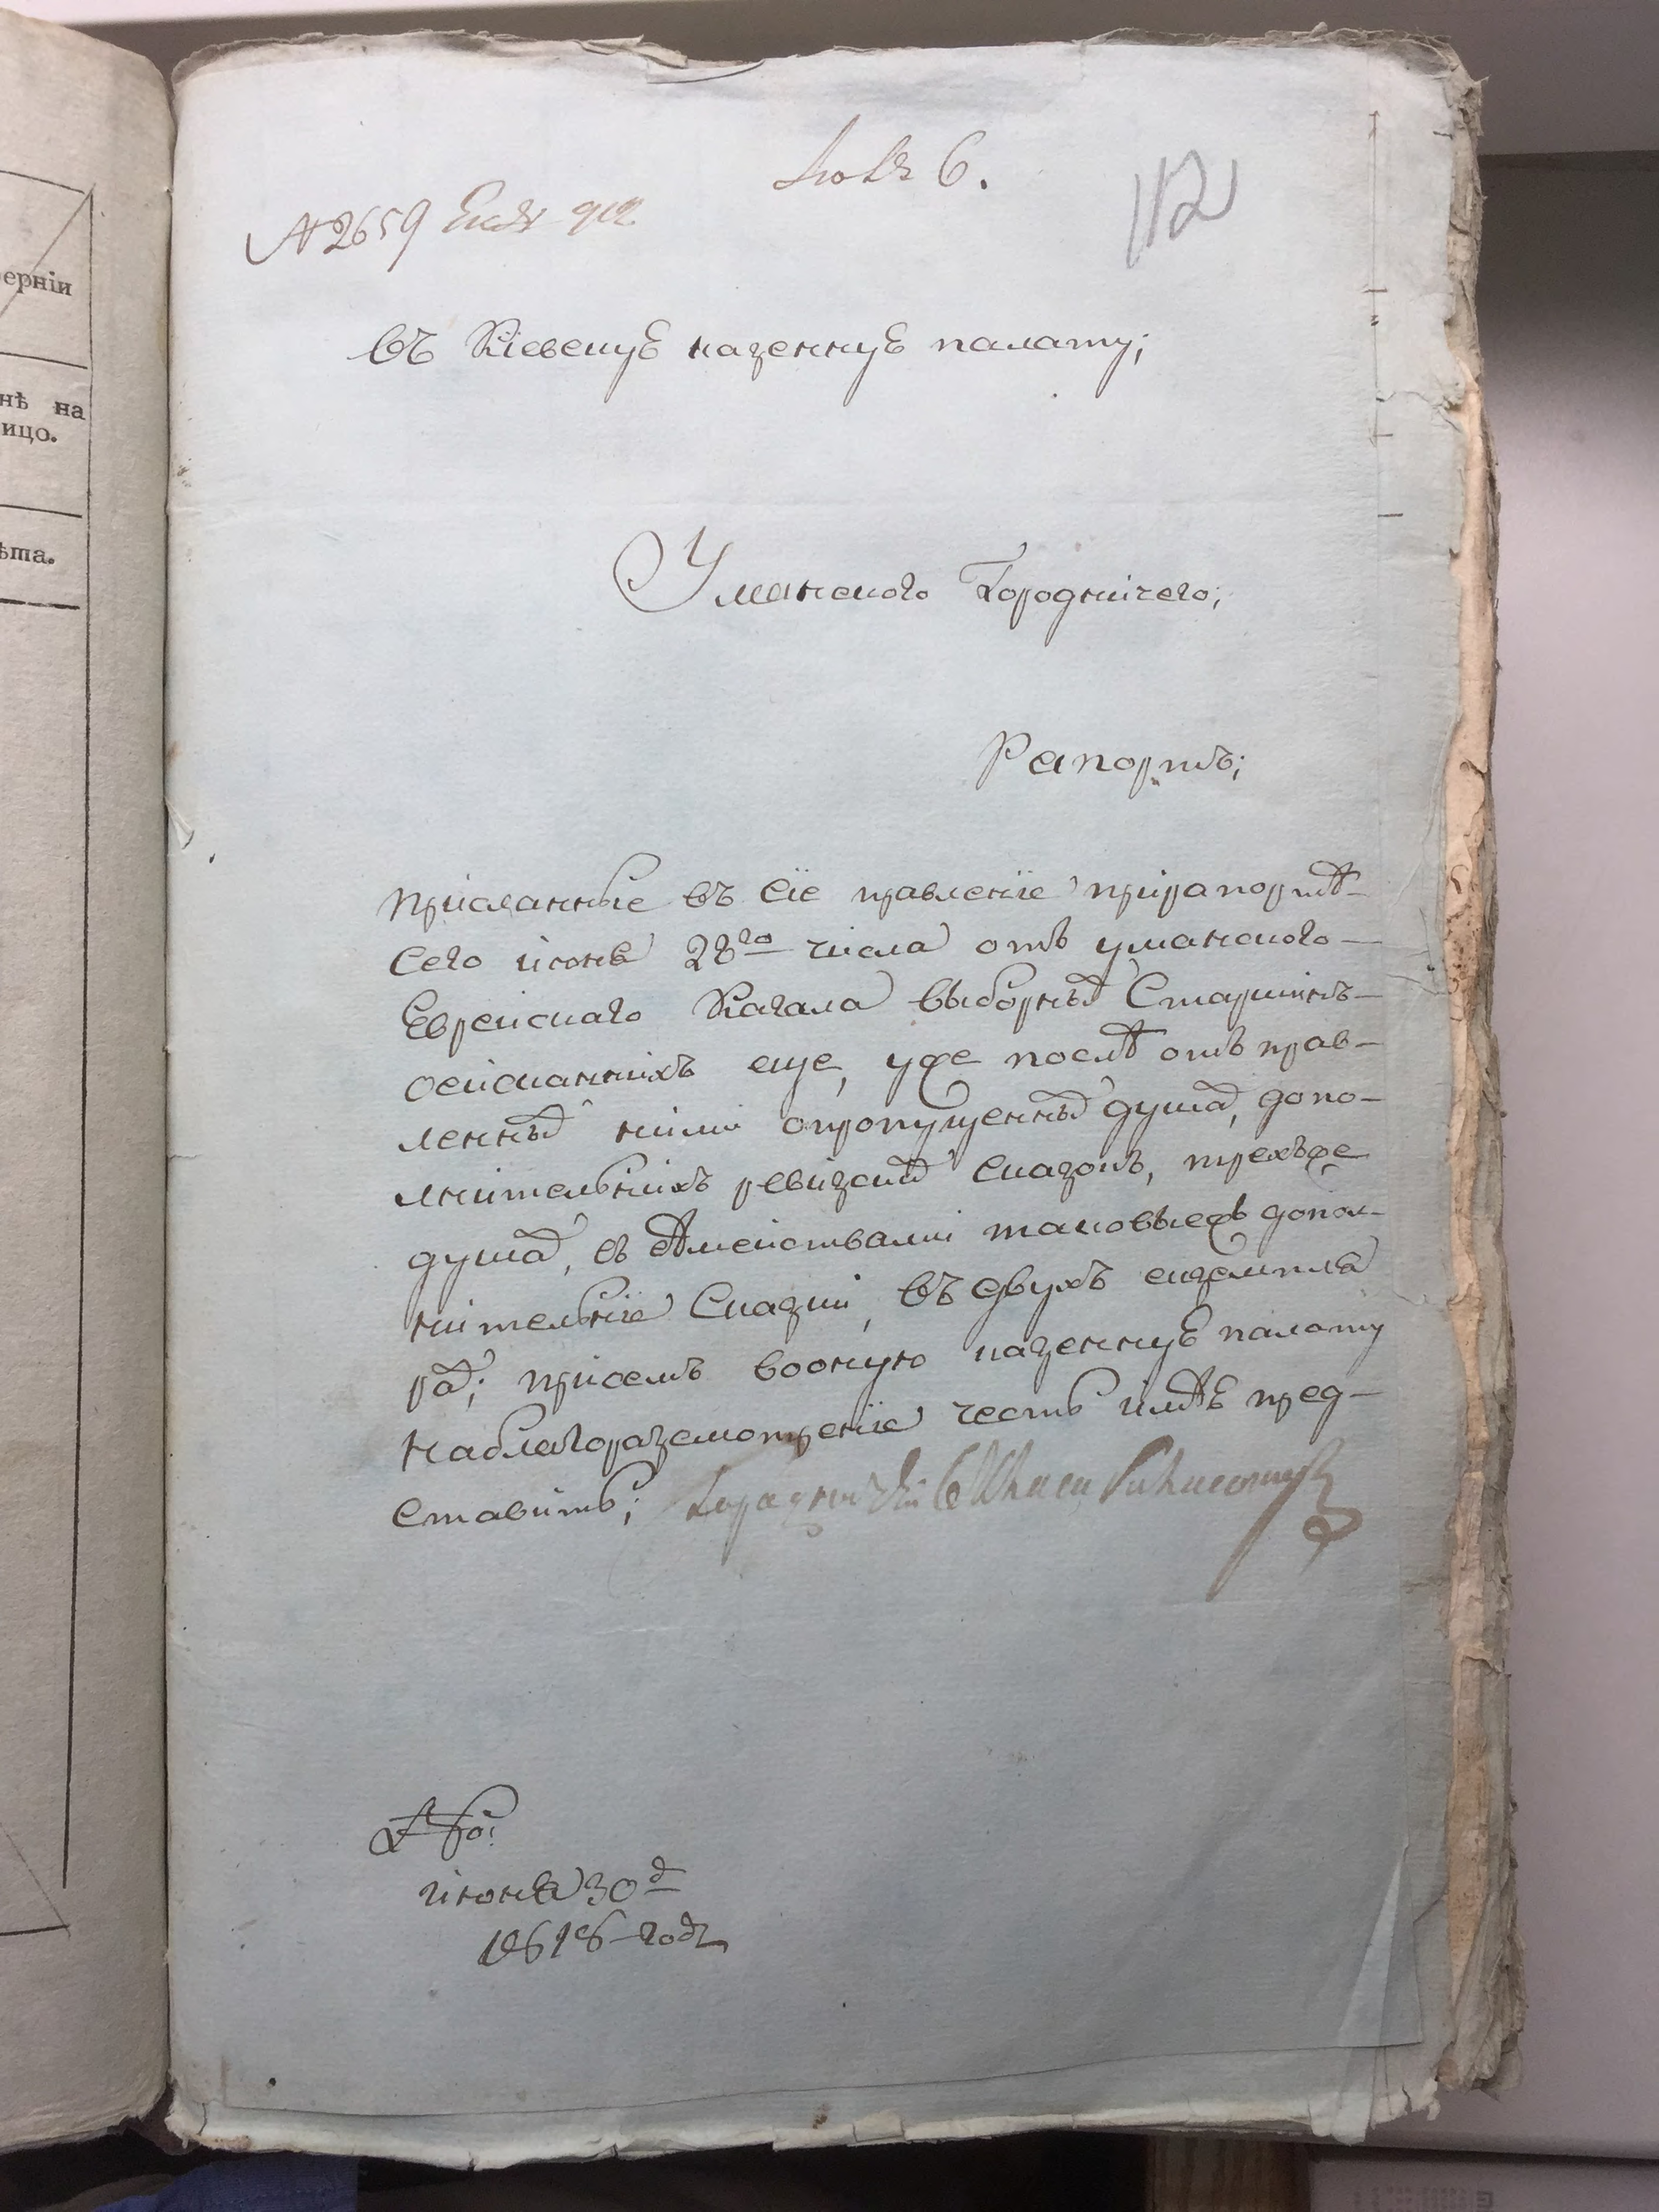 ерніи
нѣ на
ицо.
ѣта.
6.
№ 2659
112
Въ Кіевскую казенную палату;
Уманского Городничего;
Рапортъ;
Присланные въ сіе правленіе прирапортѣ
сего июня 28го числа отъ уманского
Еврейскаго Кагала выборныхъ Старшинъ
осысканнихъ еще, уже послѣ отправ-
ленныхъ ними опропущенныхъ душахъ, допо-
лнительнихъ ревизскихъ сказокъ, трехъже
душахъ, съ сѣмействами таковыежъ допол-
нительніе Сказки, въ двухъ екземпля
рахъ; присемъ вооную казенную палату
наблагоразсмотреніе честь имѣю пред-
ставить; Городничій
июня 30 д
1818 года